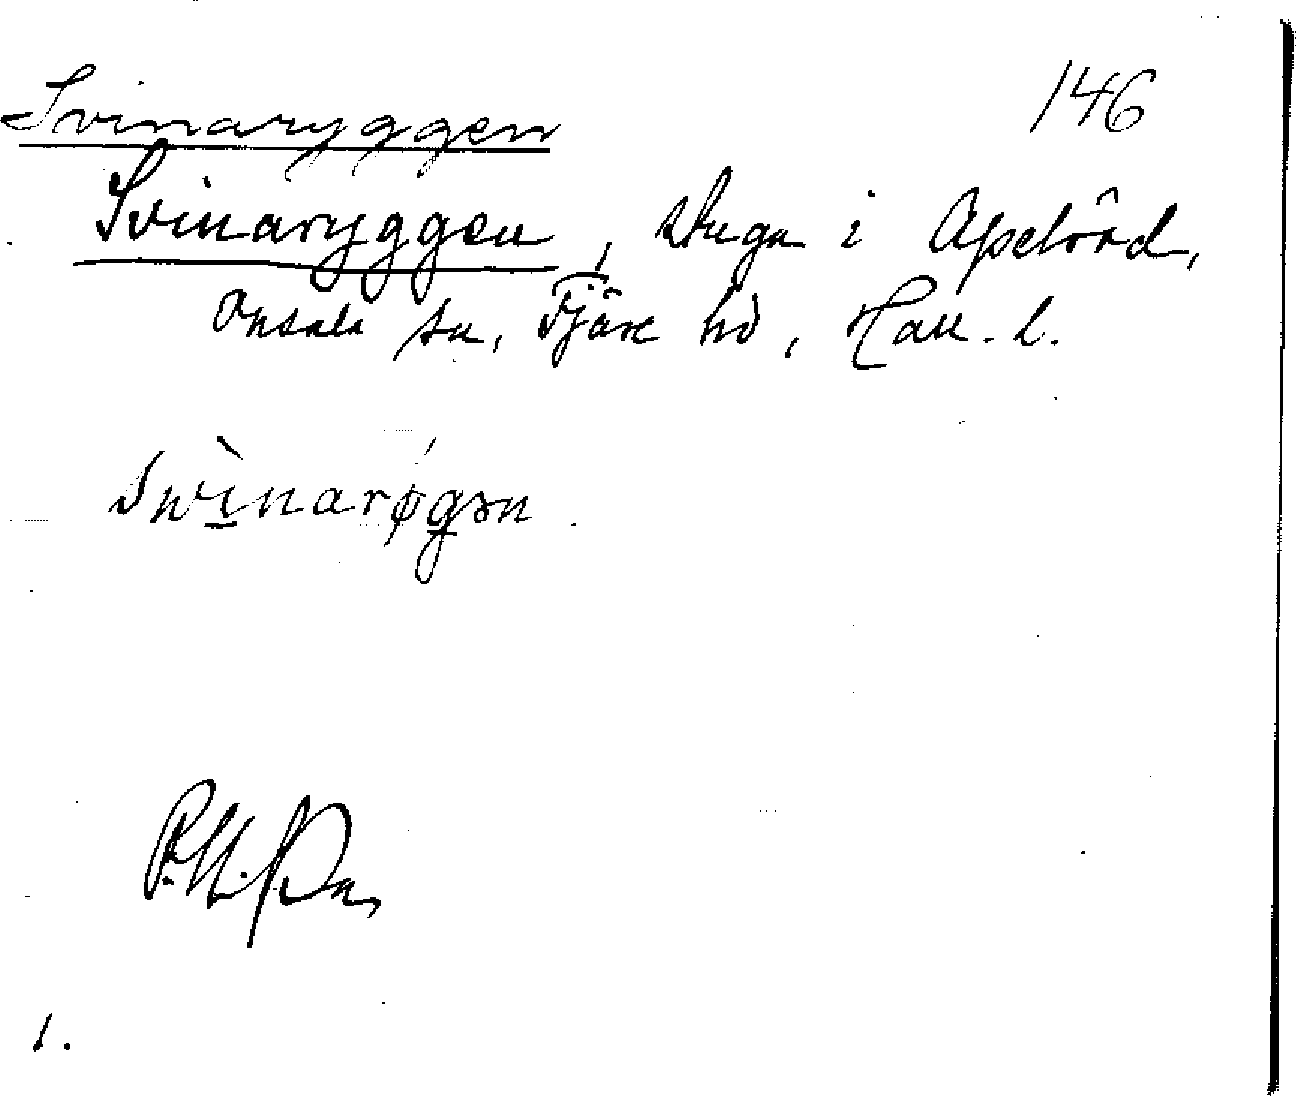 Svinaryggen 146
Svinaryggen, stuga i Apelröd,
Onsala sn, Fjäre hd, Hall. l.
Swìnarøgən
1.